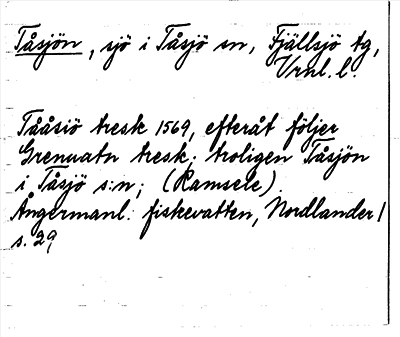 Tåsjön, sjö i Tåsjö sn, Fjällsjö tg,
Vrnl. l.
Tååsiö tresk 1569, efteråt följer
Grenuatn tresk; troligen Tåsjön
i Tåsjö s:n; (Ramsele).
Ångermanl. fiskevatten, Nordlander /
s. 29,